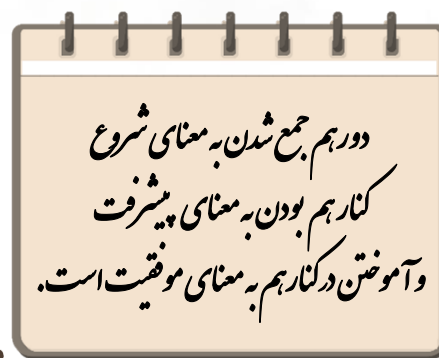 دور هم جمع شدن به معنای شروع
کنار هم بودن به معنای پیشرفت
و آموختن در کنار هم به معنای موفقیت است.